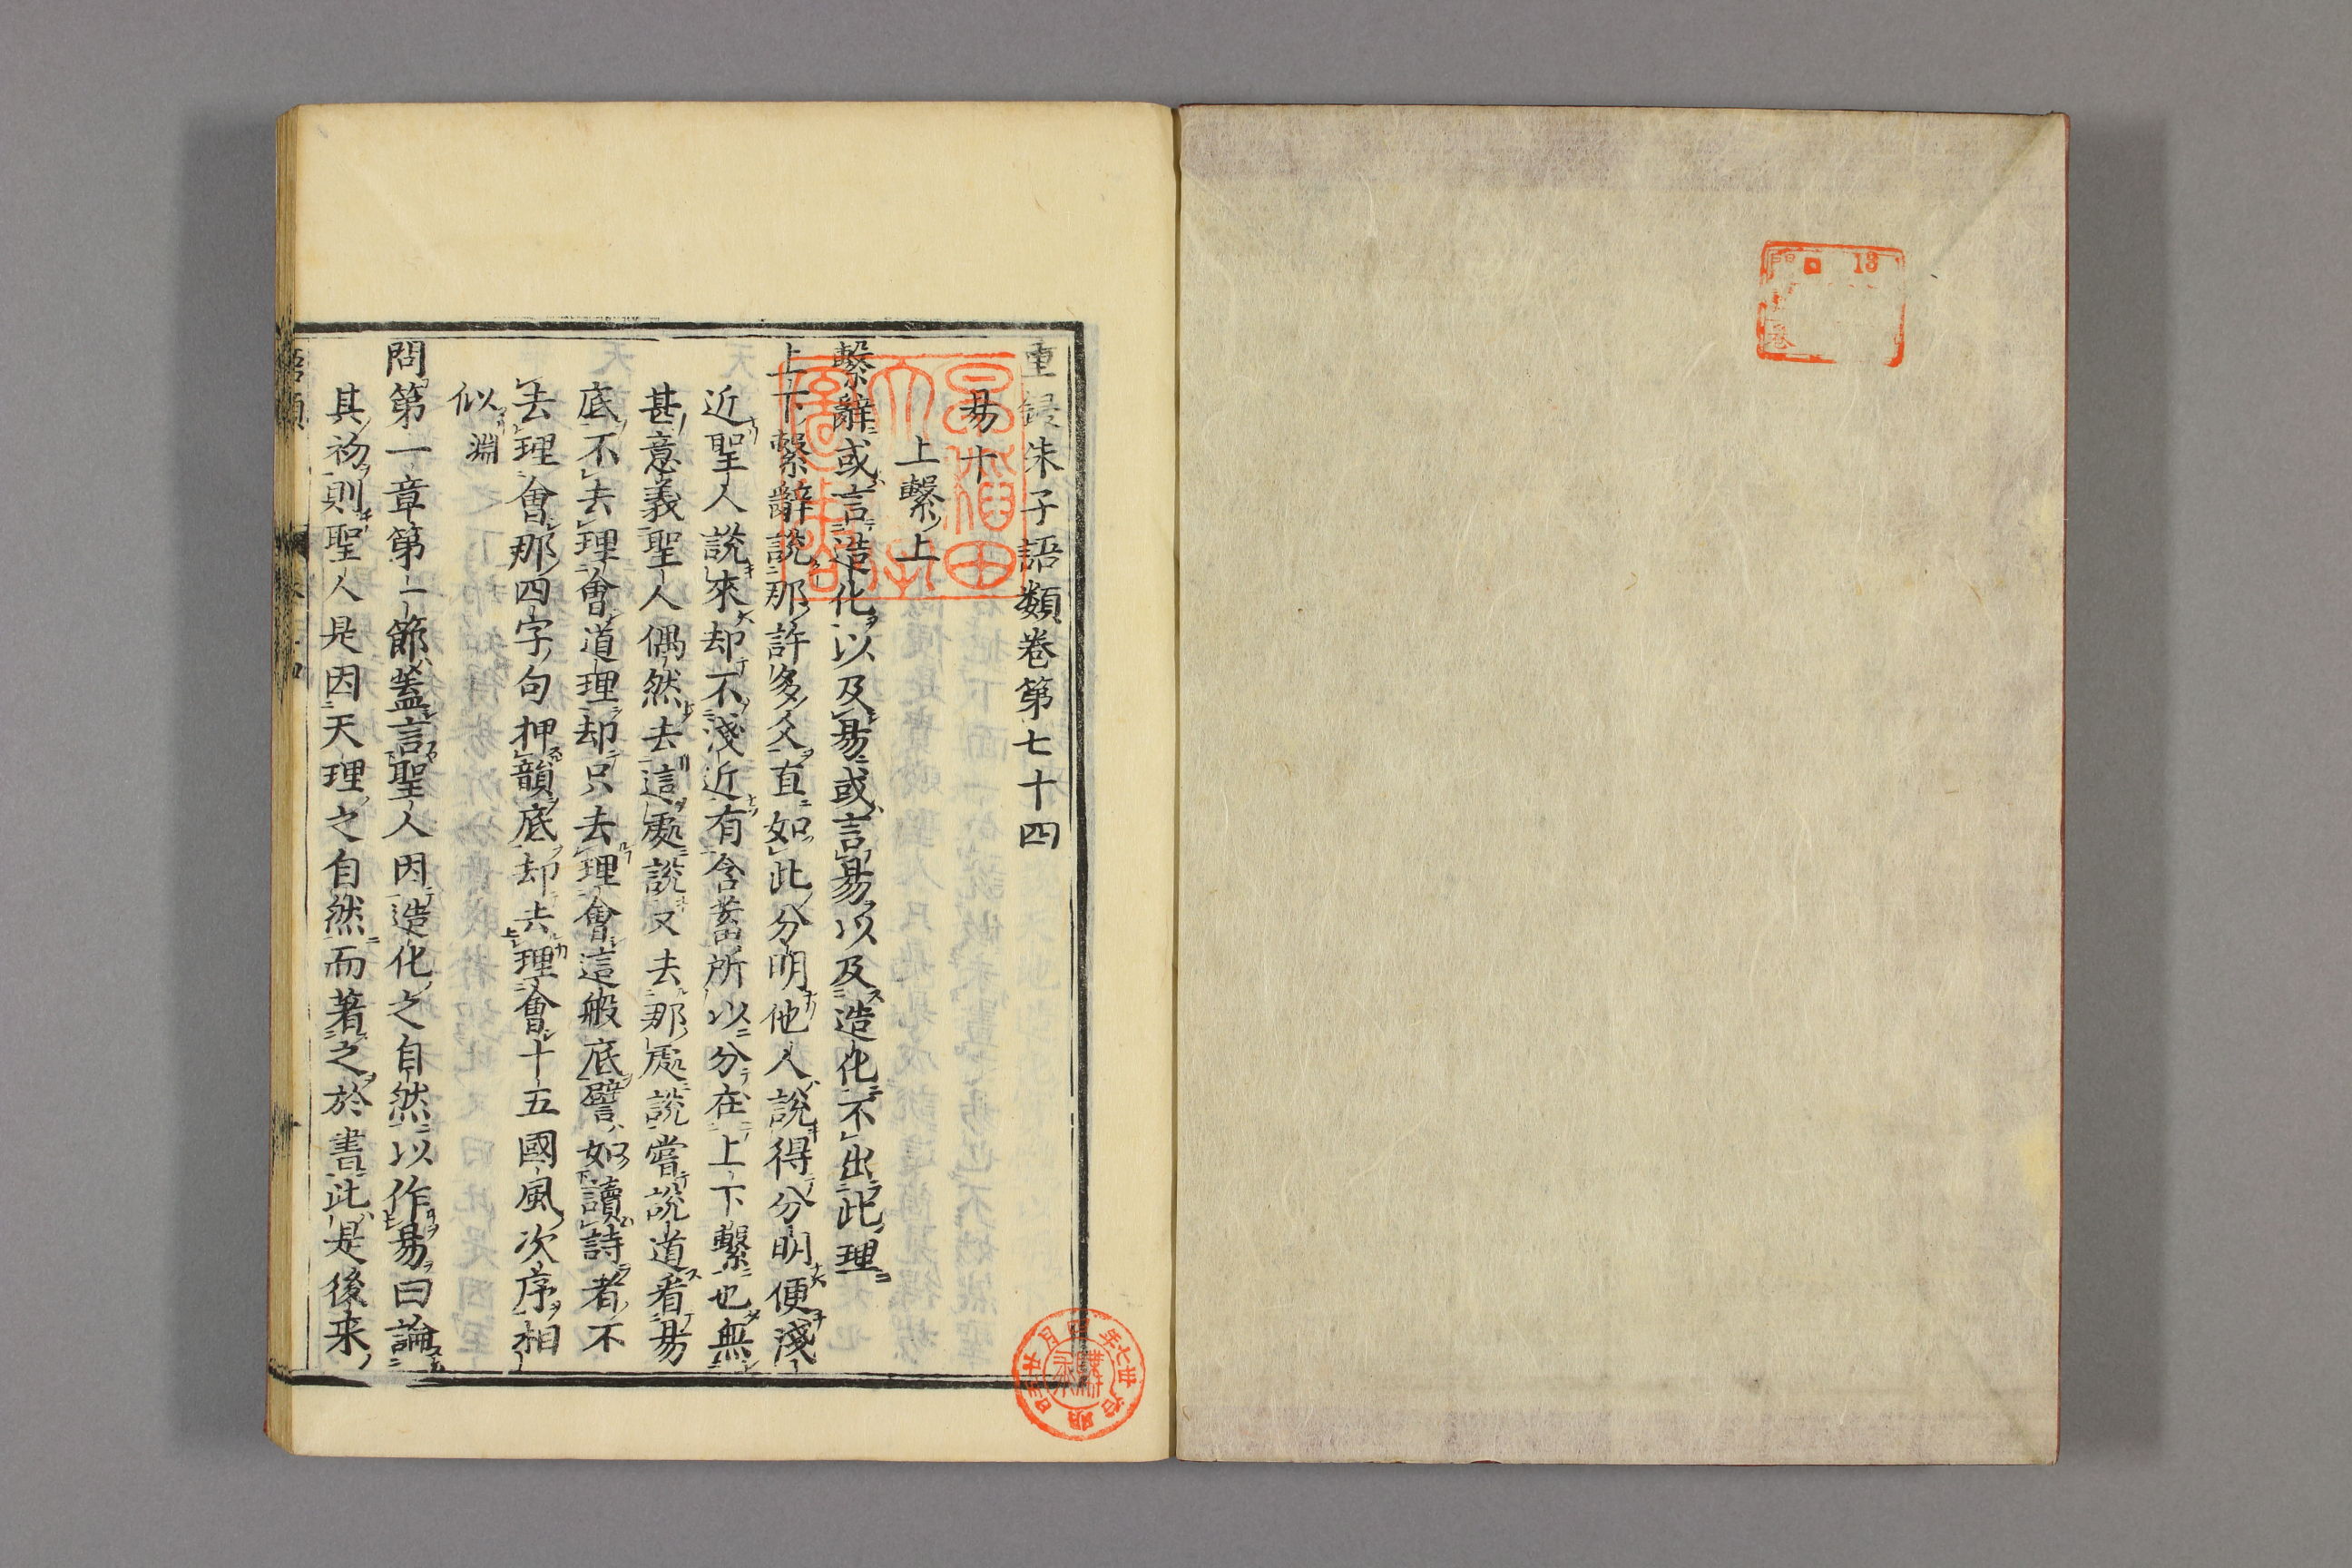 重鋟朱子語類卷第七十四
易十
上繫上
繫辭或言造化以及易或言易以及造化不出此理
上下繫辭說那許多爻直如此分明他人說得分明便淺
近聖人說來却不淺近有含蓄所以分在上下繫也無
甚意義聖人偶然去這處說又去那處說嘗說道看易
底不去理會道理却只去理會這般底譬如讀詩者不
去理會那四字句押韻底却去理會十五國風次序相
似 淵
問第一章第一節蓋言聖人因造化之自然以作易曰論
其初則聖人是因天理之自然而著之於書此是後来
早稲田大学圖書
明治卅七年四月廿五日
購求
13